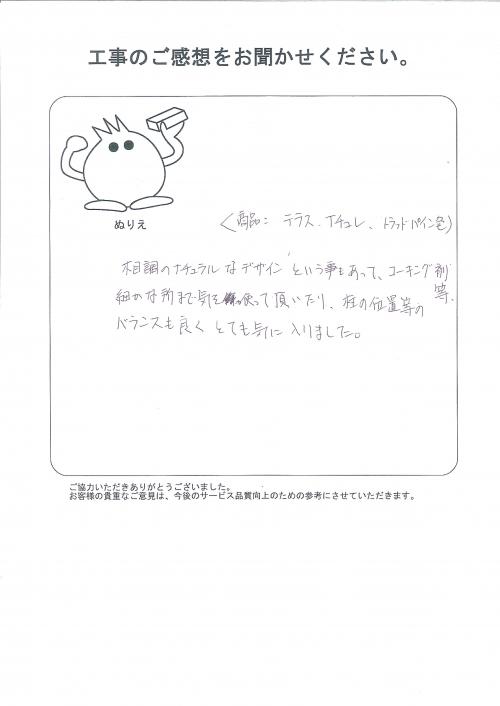 工事のご感想をお聞かせください。
ぬりえ
(商品: テラス.ナチュレ、トラッドパイン色)
木目調のナチュラルなデザインという事もあって、コーキング剤等、
細かな所まで気を使って頂いたり、柱の位置等の
バランスも良くとても気に入りました。
ご協力いただきありがとうございました。
お客様の貴重なご意見は、今後のサービス品質向上のための参考にさせていただきます。